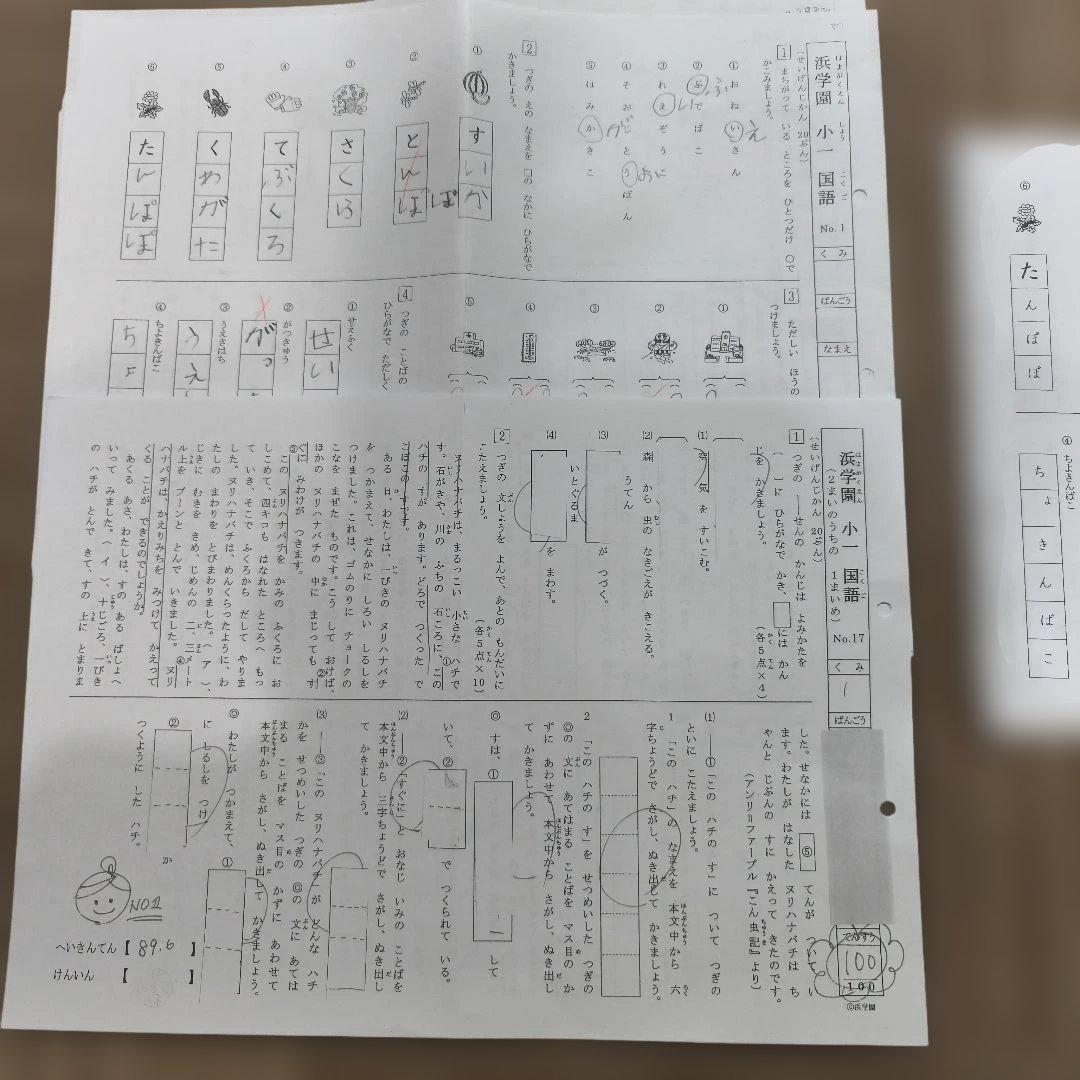 はまがくえん しょう こくご
浜学園 小一 国語 No.1
くみ
ばんごう
なまえ
(せいげんじかん 20ぷん)
1 まちがって いる ところを ひとつだけ ○で
かこみましょう。
① おねいさん え
② ぶでばこ ふ
③ れえぞうこ い
④ そおじとうばん
⑤ はみかきこ
2 つぎの えの なまえを □の なかに ひらがなで
かきましょう。
① すいか
② とんぼ
③ さくら
④ てぶくろ
⑤ くわがた
⑥ たんぽぽ
3 ただしい ほうの
つけましょう。
①
②
③
④
⑤
4 つぎの ことばの
ひらがなで ただしく
① せえふく
せい
② がつきゅう
がっ
③ うえきはち
うえ
④ ちよきんばこ
ちょ
⑥
たんぽぽ
④ ちよきんばこ
ちょきんばこ
浜学園 小一 国語 No.17
(2まいのうちの 1まいめ)
くみ
ばんごう
(せいげんじかん 20ぷん)
1 つぎの ――せんの かんじは よみかたを
( )に ひらがなで かき、□には かん
じを かきましょう。 (各5点×4)
(1) 空気を すいこむ。
(2) 森から 虫の なきごえが きこえる。
(3) うてんが つづく。
(4) いとぐるまを まわす。
2 つぎの 文しょうを よんで、あとの もんだいに
こたえましょう。 (各5点×10)
ヌリハナバチは、まるっこい 小さな ハチで
す。石がきや、川の ふちの 石ころに、①この
ハチの すが あります。どろで つくった で
こぼこの すです。
ある 日、わたしは、一ぴきの ヌリハナバチ
を つかまえて、せなかに しろい しるしを
つけました。これは、ゴムのりに チョークの
こなを まぜた ものです。こう して おけば、
ほかの ヌリハナバチの 中に まじっても ②す
ぐに みわけが つきます。
③この ヌリハナバチを かみの ふくろに お
しこめて、四キロも はなれた ところへ もっ
て いき、そこで ふくろから だして やりま
した。ヌリハナバチは、めんくらったように、わ
たしの まわりを とびまわりました。ヘ ア )、
じきに むきを きめ、じめんの 二、三メート
ル上を ブーンと とんで いきました。④ヌリ
ハナバチは、かえりみちを みつけて かえって
くる ことが できるのでしょうか。
あくる あさ、わたしは、すの ある ばしょへ
いって みました。ヘ イ )、十じごろ、一ぴき
の ハチが とんで きて、すの 上に とまりま
した。せなかには ⑤ てんが ついて い
ます。わたしが はなした ヌリハナバチは ち
ゃんと じぶんの すに かえって きたのです。
(アンリ=ファーブル『こん虫記』より)
(1) ――①「この ハチの す」に ついて つぎの
といに こたえましょう。
1 「この ハチ」の なまえを 本文中から 六
字ちょうどで さがし、ぬき出して かきましょう。
2 「この ハチの す」を せつめいした つぎの
◎の 文に あてはまる ことばを マス目の か
ずに あわせて 本文中から さがし、ぬき出し
て かきましょう。
◎ すは、① して
いて、② で つくられて いる。
(2) ――②「すぐに」と おなじ いみの ことばを
本文中から 三字ちょうどで さがし、ぬき出し
て かきましょう。
(3) ――③「この ヌリハナバチ」が どんな ハチ
かを せつめいした つぎの ◎の 文に あては
まる ことばを マス目の かずに あわせて
本文中から さがし、ぬき出して かきましょう。
◎ わたしが つかまえて、① か
に しるしを つけ
② つくように した ハチ。
てんすう
100
100
©浜学園
NO1
へいきんてん【 89.6 】
けんいん 【 】